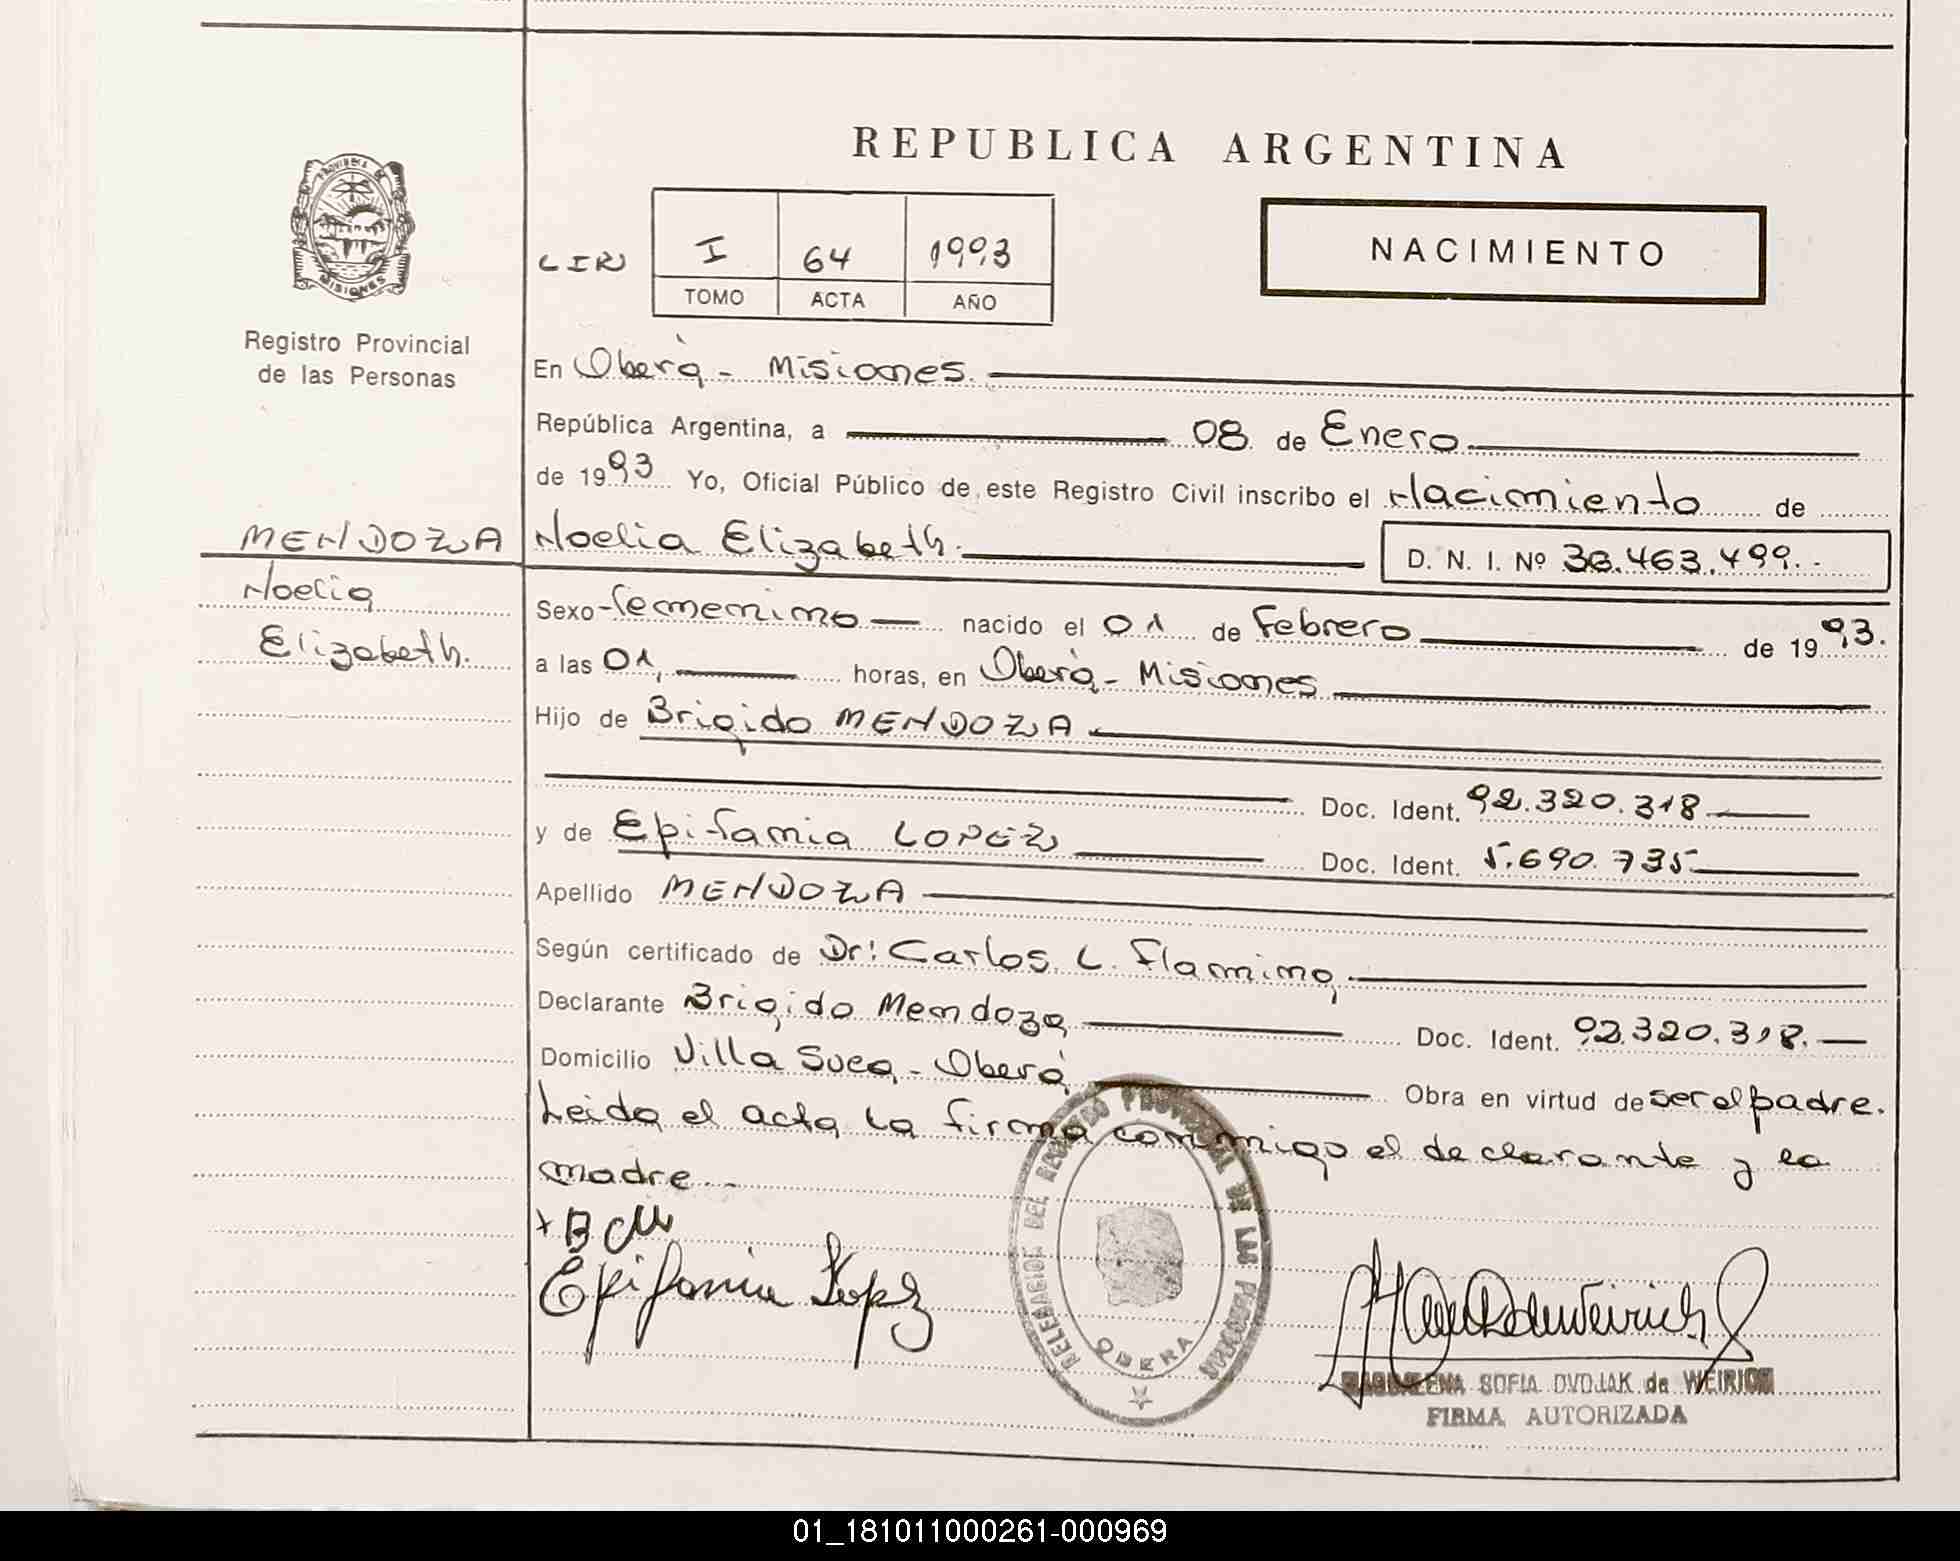 REPUBLICA ARGENTINA
PROVINCIA DE
MISIONES
Registro Provincial
de las Personas
LIR I 64 1993
TOMO ACTA AÑO
NACIMIENTO
En Oberá - Misiones.
República Argentina, a 08 de Enero
de 1993 Yo, Oficial Público de este Registro Civil inscribo el Nacimiento de
MENDOZA Noelia Elizabeth. D. N. I. Nº 36.463.499.-
Noelia
Elizabeth.
Sexo femenino nacido el 01 de Febrero de 1993.
a las 01, horas, en Oberá - Misiones
Hijo de Brigido MENDOZA
Doc. Ident. 92.320.318
y de Epifania LOPEZ Doc. Ident. 5.690.735
Apellido MENDOZA
Según certificado de Dr: Carlos L. Flamino,
Declarante Brigido Mendoza Doc. Ident. 92.320.318.
Domicilio Villa Suea - Oberá Obra en virtud de ser el padre.
Leida el acta la firma conmigo el declarante y la
madre.-
+ B CM
Epifania Lopez
DELEGACION DEL REGISTRO PROVINCIAL DE LAS PERSONAS
OBERA
MAGDALENA SOFIA DVOJAK de WEIRICH
FIRMA AUTORIZADA
01_181011000261-000969